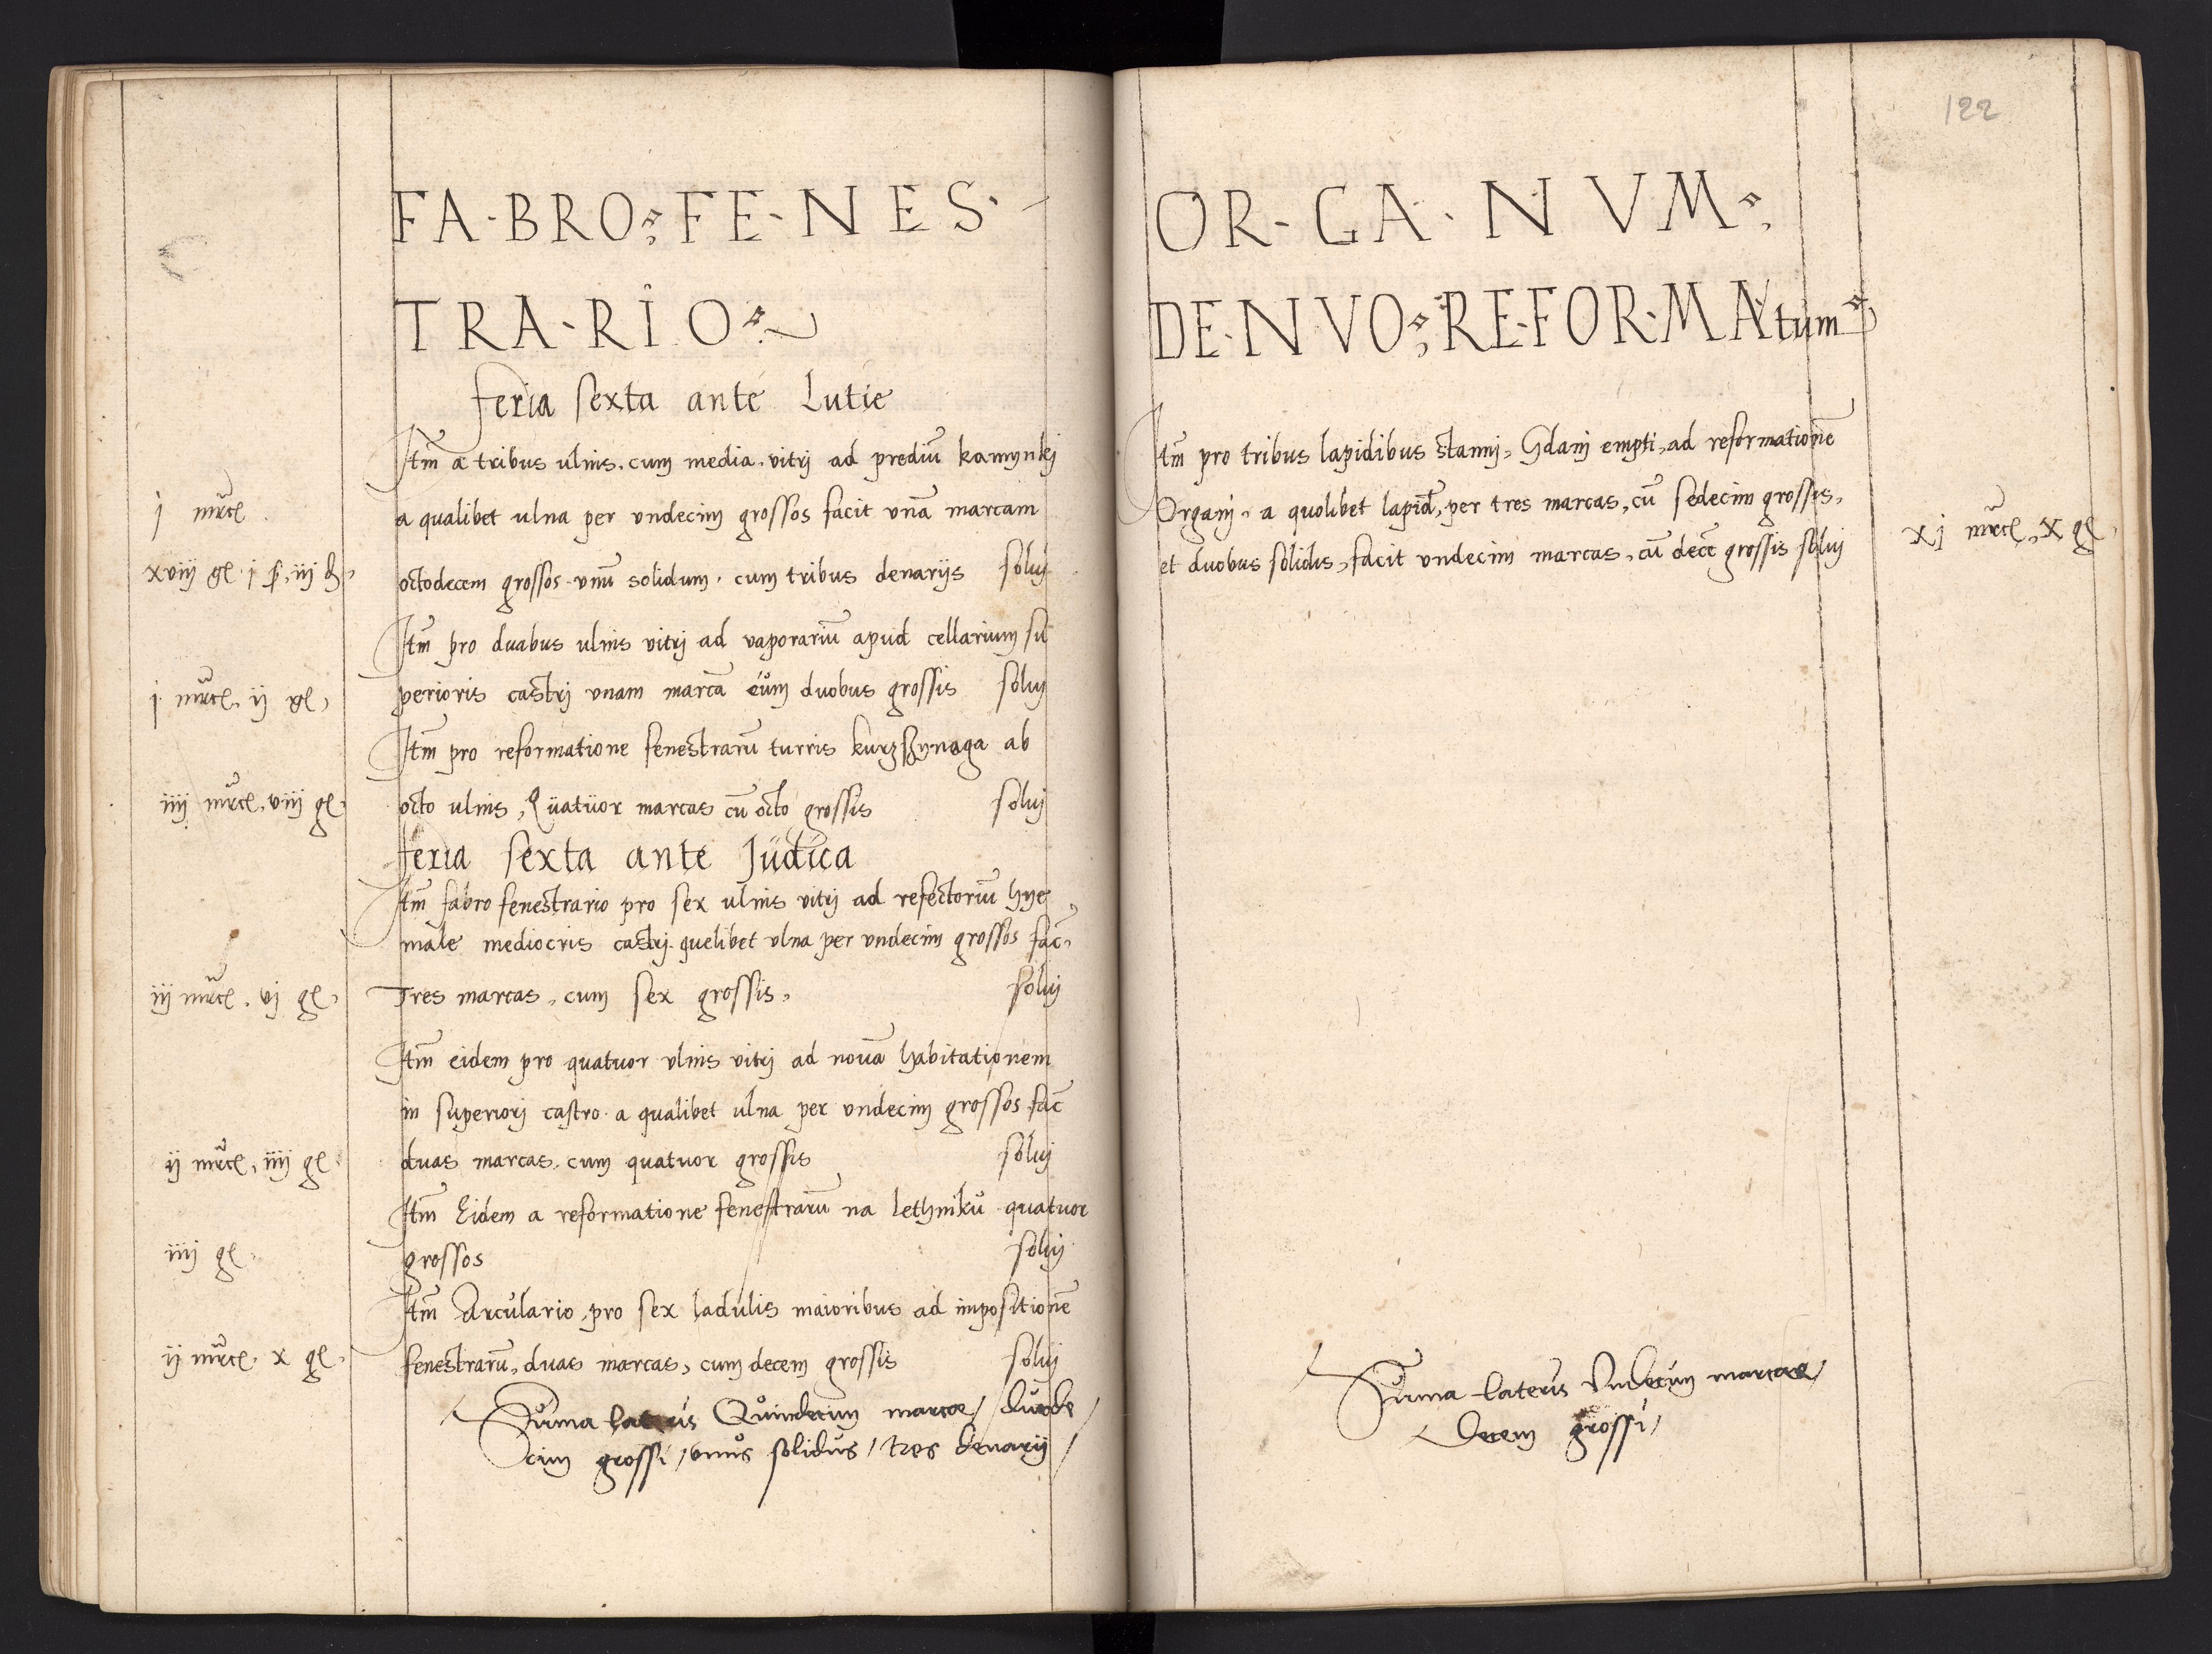 FA·BRO: FE·NES·
TRA·RIO:
feria sexta ante Lutie
Itm̃ a tribus ulnis. cum media. vitrj ad prediũ kamynkj
j mrc̃ a qualibet ulna per vndecim grossos facit vnã marcam
xviij gr j ß, iij d, octodecem grossos vnũ solidum. cum tribus denarijs soluj
Itm̃ pro duabus ulnis vitrj ad vaporariũ apud cellarium su
j mrc̃, ij gr, perioris castrj vnam marcã cum duobus grossis soluj
Itm̃ pro reformatione fenestrarũ turris kurzßynoga ab
iiij mrc̃, viij gr, octo ulnis, Quatuor marcas cũ octo grossis soluj
feria sexta ante Judica
Itm̃ fabro fenestrario pro sex ulnis vitrj ad refectoriũ hye
male mediocris castrj. quelibet vlna per vndecim grossos fac̃,
iij mrc̃. vj gr, Tres marcas, cum sex grossis, soluj
Itm̃ eidem pro quatuor vlnis vitrj ad nouã habitationem
in superiorj castro a qualibet ulna per vndecim grossos fac̃
ij mrc̃, iiij gr duas marcas. cum quatuor grossis soluj
Itm̃ Eidem a reformatione fenestrarũ na lethniku quatuor
iiij gr grossos soluj
Itm̃ Arculario, pro sex ladulis maioribus ad impositionẽ
ij mrc̃. x gr, fenestrarũ, duas marcas, cum decem grossis soluj
Sum̃a lateris Quindecim marcae / duode
cim grossi / vnus solidus / tres denarij /
122
OR·GA·NVM:
DE·NVO: RE·FOR·MAtum
Itm̃ pro tribus lapidibus stannj, Gdanj empti, ad reformationẽ
Organj, a quolibet lapid̃, per tres marcas, cũ sedecim grossis,
et duobus solidis, facit vndecim marcas, cũ decẽ grossis soluj xj mrc̃, x gr,
Sum̃a lateris Vndecim marcae /
Decem grossi /